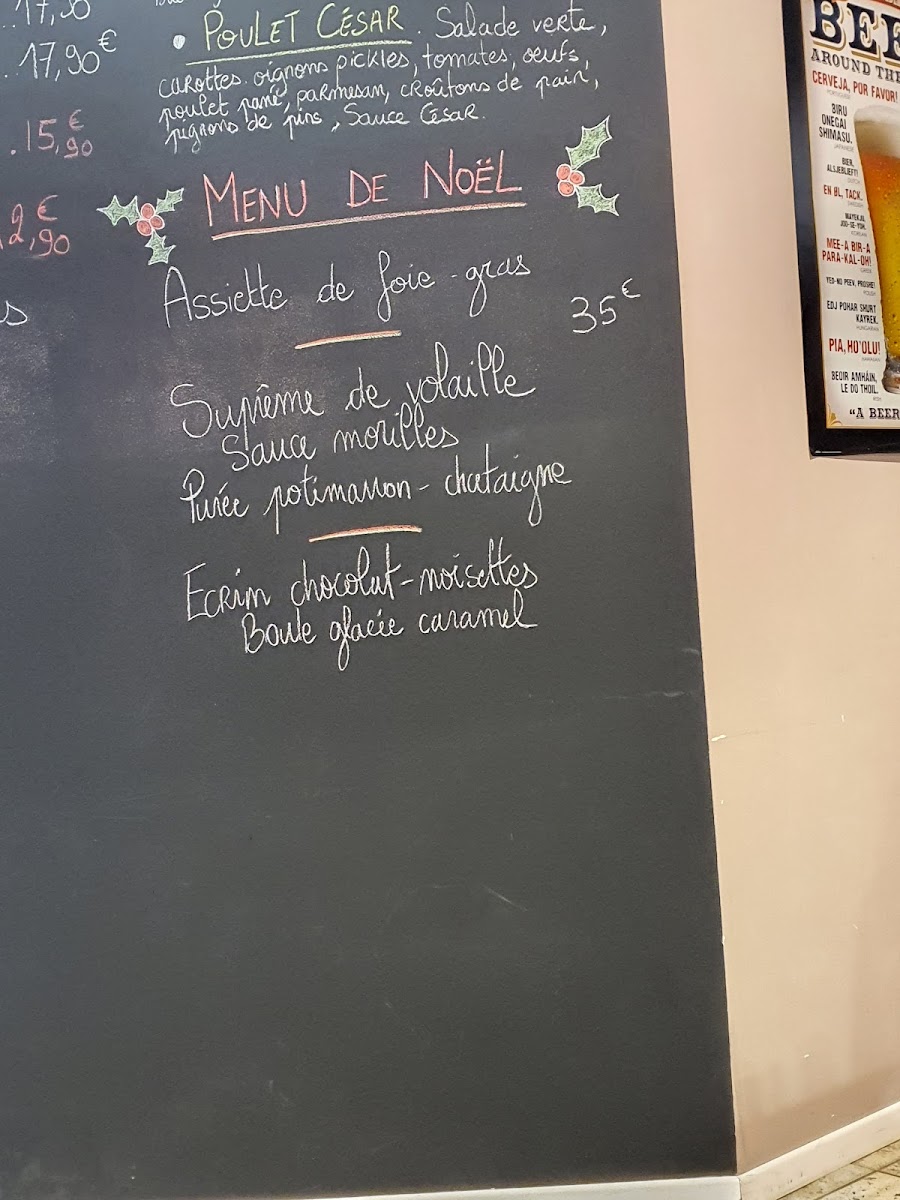 17,90
17,90€
15,90€
2,90€
• POULET CÉSAR. Salade verte,
carottes. oignons pickles, tomates, oeufs,
poulet pané, parmesan, croûtons de pain,
pignons de pins, Sauce César.
MENU DE NOËL
Assiette de foie-gras
35€
Suprême de volaille
Sauce morilles
Purée potimarron-chataigne
Ecrin chocolat-noisettes
Boule glacée caramel
BEE
AROUND THE
CERVEJA, POR FAVOR!
BIRU
ONEGAI
SHIMASU.
JAPANESE
BIER,
ALSJEBLIEFT!
DUTCH
EN ØL, TACK.
SWEDISH
MAYEKJU,
JOO-SE-YOH.
KOREAN
MEE-A BIR-A
PARA-KAL-OH!
GREEK
YED-NO PEEV, PROSHE!
POLISH
EDJ POHAR SHURT
KAYREK.
HUNGARIAN
PIA, HO'OLU!
HAWAIIAN
BEOIR AMHÁIN,
LE DO THOIL.
"A BEER